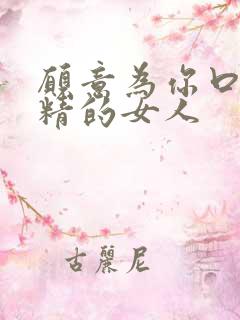 願意為你口
精的女人
古麗尼